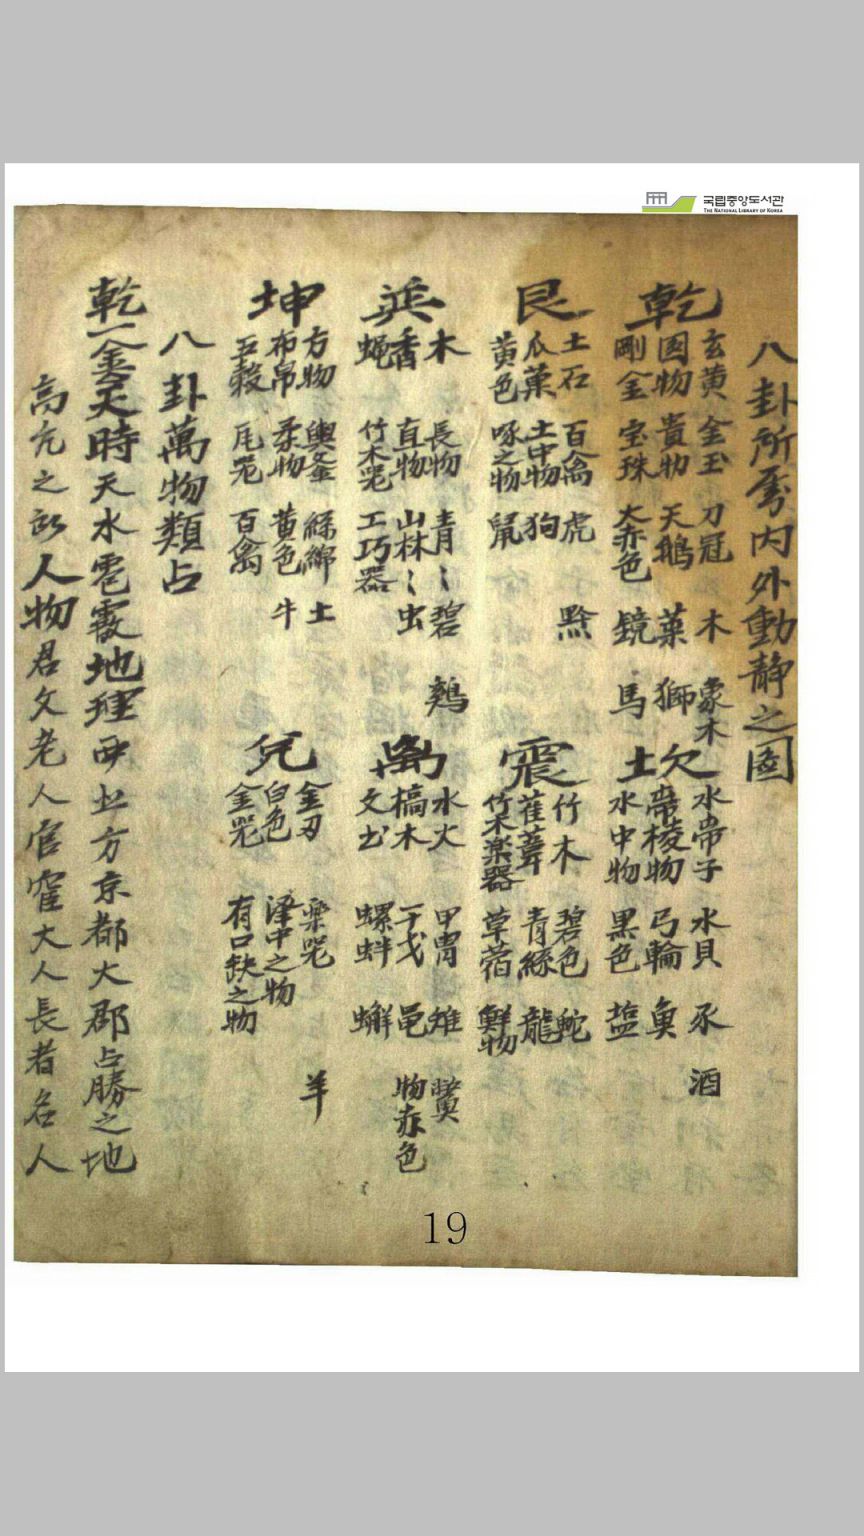 국립중앙도서관
THE NATIONAL LIBRARY OF KOREA
八卦所屬内外動静之圖
乾
玄黄 金玉 刀冠 木 象木
圓物 貴物 天鵝 菓 獅
剛金 宝珠 大赤色 鏡 馬
坎
水帶子 水貝 豕 酒
帶核物 弓輪 魚
水中物 黒色 塩
艮
土石 百禽 虎 黔
瓜菓 土中物 狗
黄色 啄之物 鼠
震
竹木 碧色 蛇
萑葦 青絲 龍
竹木楽器 草 鮮物
巽
木 長物 青〻碧 鷄
香 直物 山林〻虫
蝿 竹木咒 工巧器
离
水火 甲冑 雉
槁木 干戈 黽 物赤色
文书 螺蚌 蠏
坤
方物 輿釜 絲綿 土
布帛 柔物 黄色 牛
五穀 瓦咒 百禽
兌
金刃 楽咒 羊
白色 澤中之物
金咒 有口缺之物
八卦萬物類占
乾一金天時天水雹霰地理西北方京都大郡占勝之地
高亢之所人物君父老人官宦大人長者名人
19